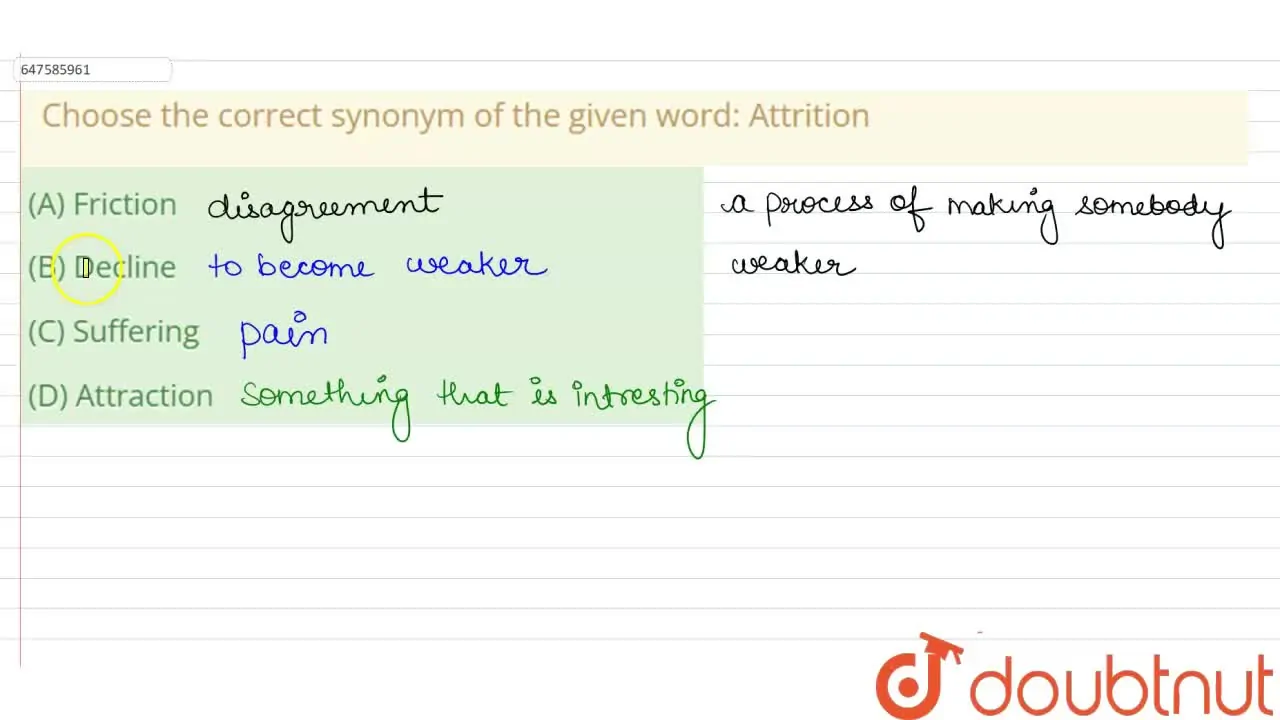 647585961
Choose the correct synonym of the given word: Attrition
(A) Friction disagreement
a process of making somebody
(B) Decline to become weaker
weaker
(C) Suffering pain
(D) Attraction something that is intresting
doubtnut